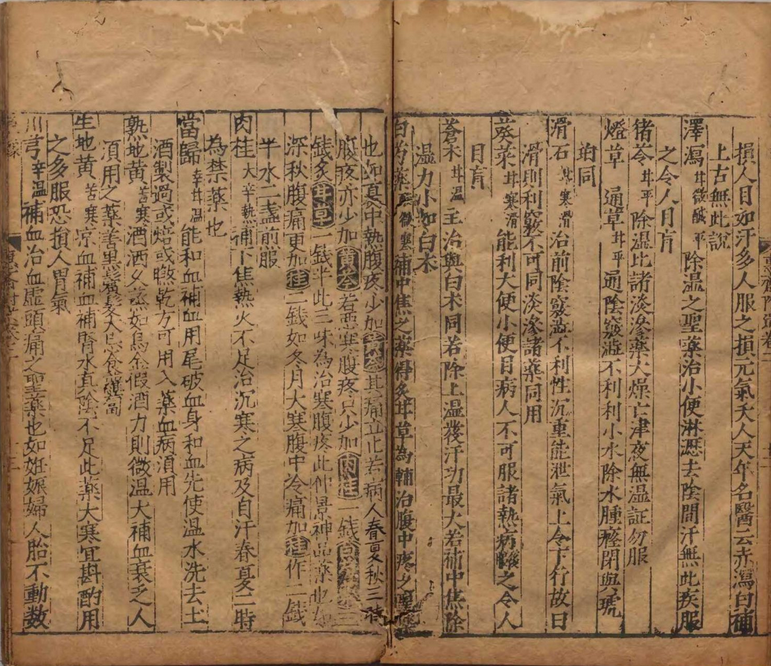 損人目如汗多人服之損元氣夭人天年名醫云赤瀉白補
上古無此說
澤瀉甘微醎平除湿之聖藥治小便淋瀝去陰間汗無此疾服
之令人目盲
猪苓甘平除湿比諸淡滲藥大燥亡津夜無湿証勿服
燈草 通草甘平通陰竅澁不利利小水除水腫癃閉與琥
珀同
滑石甘寒滑治前陰竅澁不利性沉重能泄氣上令下行故曰
滑則利竅不可同淡滲諸藥同用
葵菜甘寒滑能利大便小便目病人不可服諸熱病後服之令人
目盲
蒼朮甘温主治與白朮同若除上湿發汗功最大若補中焦除
湿力小如白朮
白芍藥微寒補中焦之藥得炙甘草為輔治腹中疼
也如夏中熱腹疼少加其痛立止若病人春夏秋三時
腹疼亦少加黃芩若惡寒腹疼只少加肉桂一錢白芍藥三
錢炙甘草一錢半此三味為治寒腹疼此仲景神品藥也如
深秋腹痛更加桂二錢如冬月大寒腹中冷痛加桂作二錢
半水二盞煎服
肉桂大辛熱補下焦熱火不足治沉寒之病及自汗春夏二時
為禁藥也
當歸辛甘温能和血補血用尾破血身和血先使温水洗去土
酒製過或焙或曬乾方可用入藥血病湏用
熟地黃苦寒酒洒九蒸如烏金假酒力則微温大補血衰乏人
湏用之藥善黑鬚髮
生地黃苦寒凉血補血補腎水真陰不足此藥大寒宜斟酌用
之多服恐損人胃氣
川芎辛温補血治血虛頭痛之聖藥也如妊娠婦人胎不動數